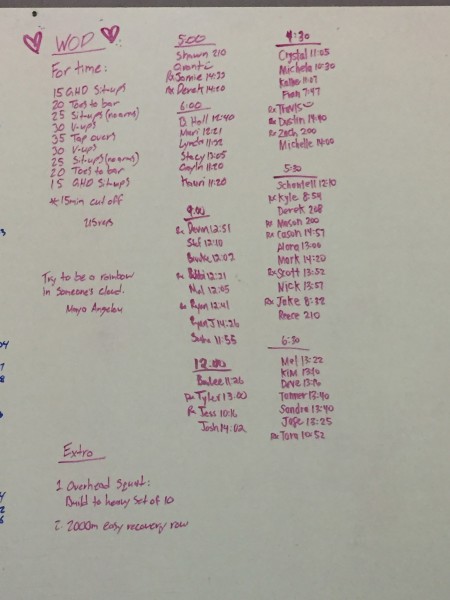 WOD
For time:
15 GHD Situps
20 Toes to bar
25 Situps (no arms)
30 V-ups
35 Tap overs
30 V-ups
25 Situps (no arms)
20 Toes to bar
15 GHD Situps
*15min cut off
Try to be a rainbow
in someone's cloud.
Maya Angelou
Extra
1. Overhead Squat:
Build to heavy set of 10
2. 2000m easy recovery row
5:00
Shawn 210
Rx Jamie 14:33
Rx Derek 14:20
6:00
D. Hall 12:40
Mari 12:21
Lynda 11:32
Stacy 13:05
Kauri 11:20
9:00
Rx Devon 12:51
Stef 12:10
12:02
12:21
Mel 12:05
Rx Ryan 12:41
Ryan J 14:26
11:55
12:00
Bailee 11:26
Rx Tyler 13:00
Rx Jess 10:16
Josh 14:02
4:30
Crystal 11:05
Michela 10:30
11:07
Fran 7:47
Rx Travis
Rx Dustin 14:40
Rx Zach 200
Michelle 14:00
5:30
12:10
Rx Kyle 8:54
Derek 208
Rx Mason 200
Rx Cason 14:57
Alana 13:00
Mark 14:20
Rx Scott 13:52
Nick 13:57
Rx Jake 8:32
Reece 210
6:30
Mel 13:22
Kim 13:10
Dave 13:16
Tanner 13:40
Sandra 13:40
Jose 13:25
Rx Tara 10:52